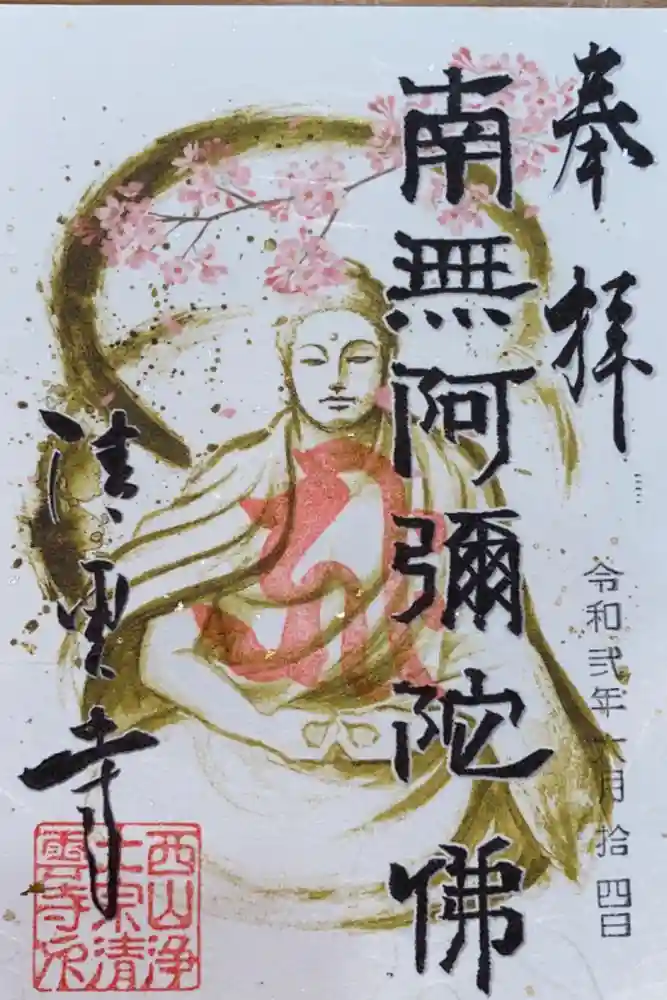 奉拝
令和弐年六月拾四日
南無阿彌陀佛
清雲寺
西山浄
土宗清
雲寺印